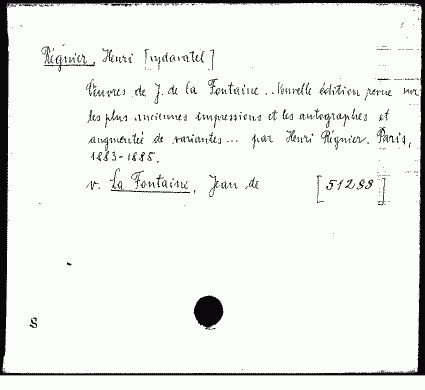 Régnier, Henri [vydavatel]
Œuvres de J. de la Fontaine.. Nouvelle édition revue sur
les plus anciennes impressions et les autographes et
augmentée de variantes... par Henri Régnier. Paris,
1883-1885.
v. La Fontaine, Jean de [51299]
S